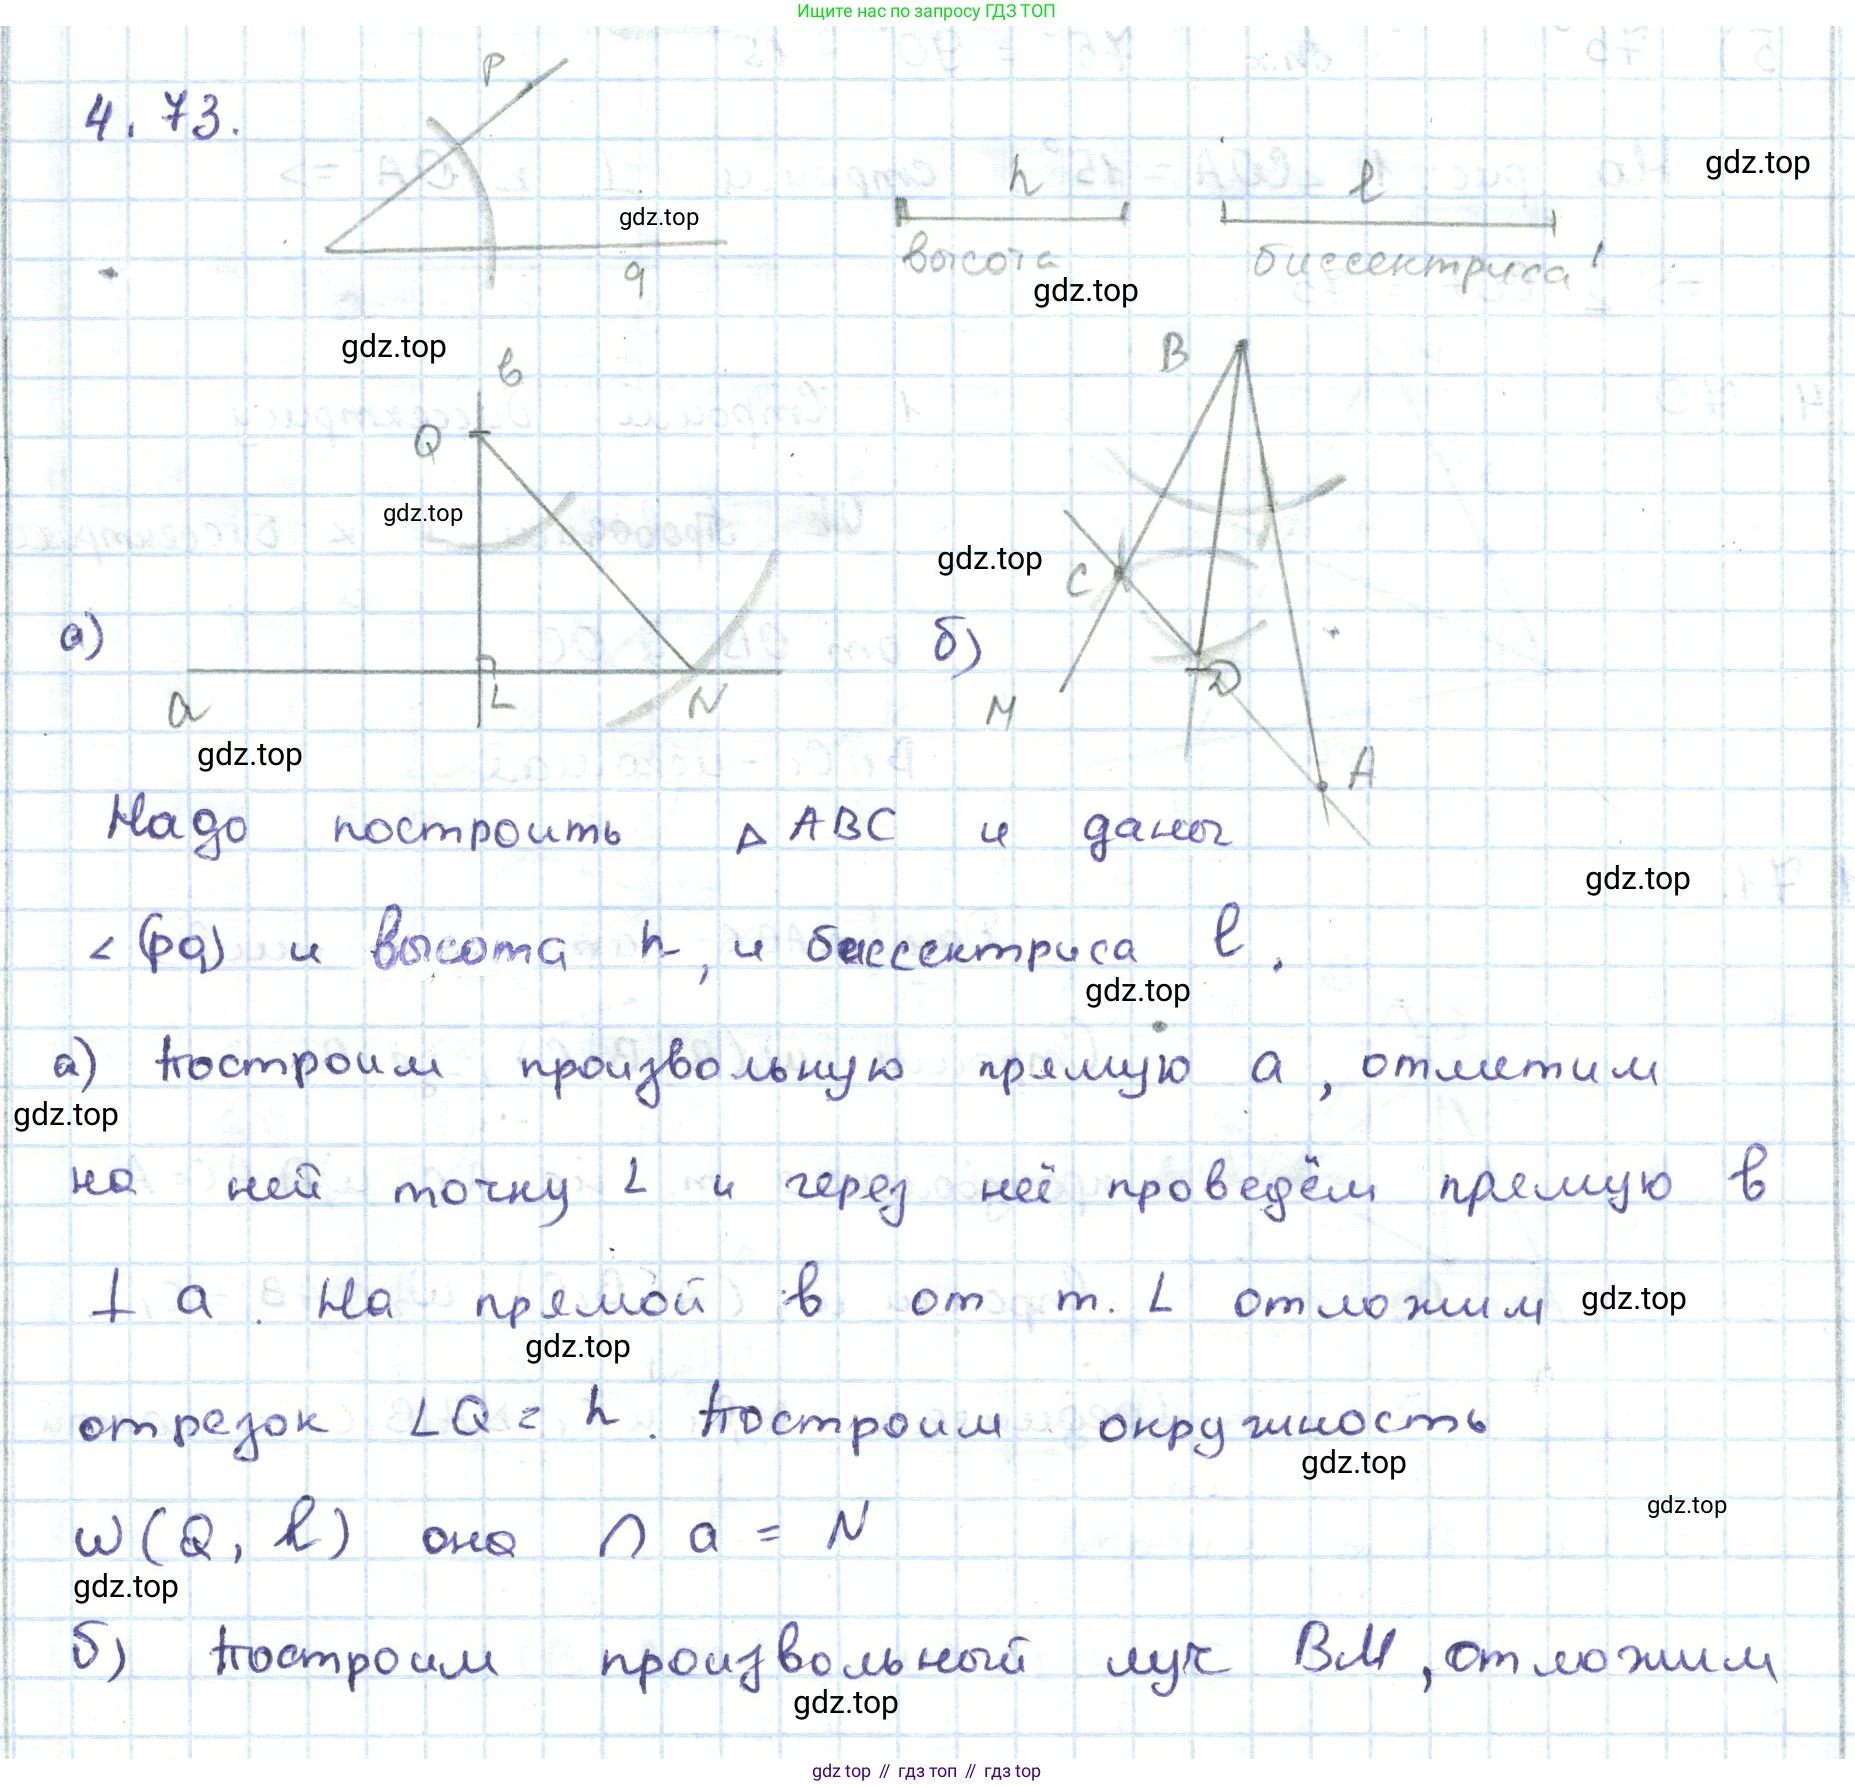 Ищите нас по запросу ГДЗ ТОП
4.73.
P
q
gdz.top
h
высота
gdz.top
l
биссектриса!
gdz.top
gdz.top
в
Q
gdz.top
а)
a
L
N
gdz.top
B
gdz.top
C
б)
D
M
A
Надо построить △ABC и даны
gdz.top
<(pq) и высота h, и биссектриса l.
gdz.top
а) Построим произвольную прямую a, отметим
gdz.top
на ней точку L и через неё проведём прямую в
⊥ a. На прямой в от т. L отложим
gdz.top
gdz.top
отрезок LQ = h. Построим окружность
gdz.top
w(Q, l) она ∩ a = N
gdz.top
gdz.top
б) Построим произвольный луч BM, отложим
gdz.top
gdz top // гдз топ // гдз top